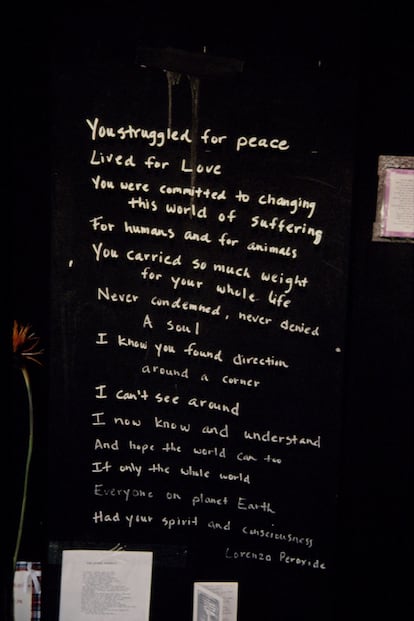 You struggled for peace
Lived for Love
You were committed to changing
this world of suffering
For humans and for animals
You carried so much weight
for your whole life
Never condemned, never denied
A soul
I know you found direction
around a corner
I can't see around
I now know and understand
And hope the world can too
If only the whole world
Everyone on planet Earth
Had your spirit and consciousness
Lorenzo Peroxide